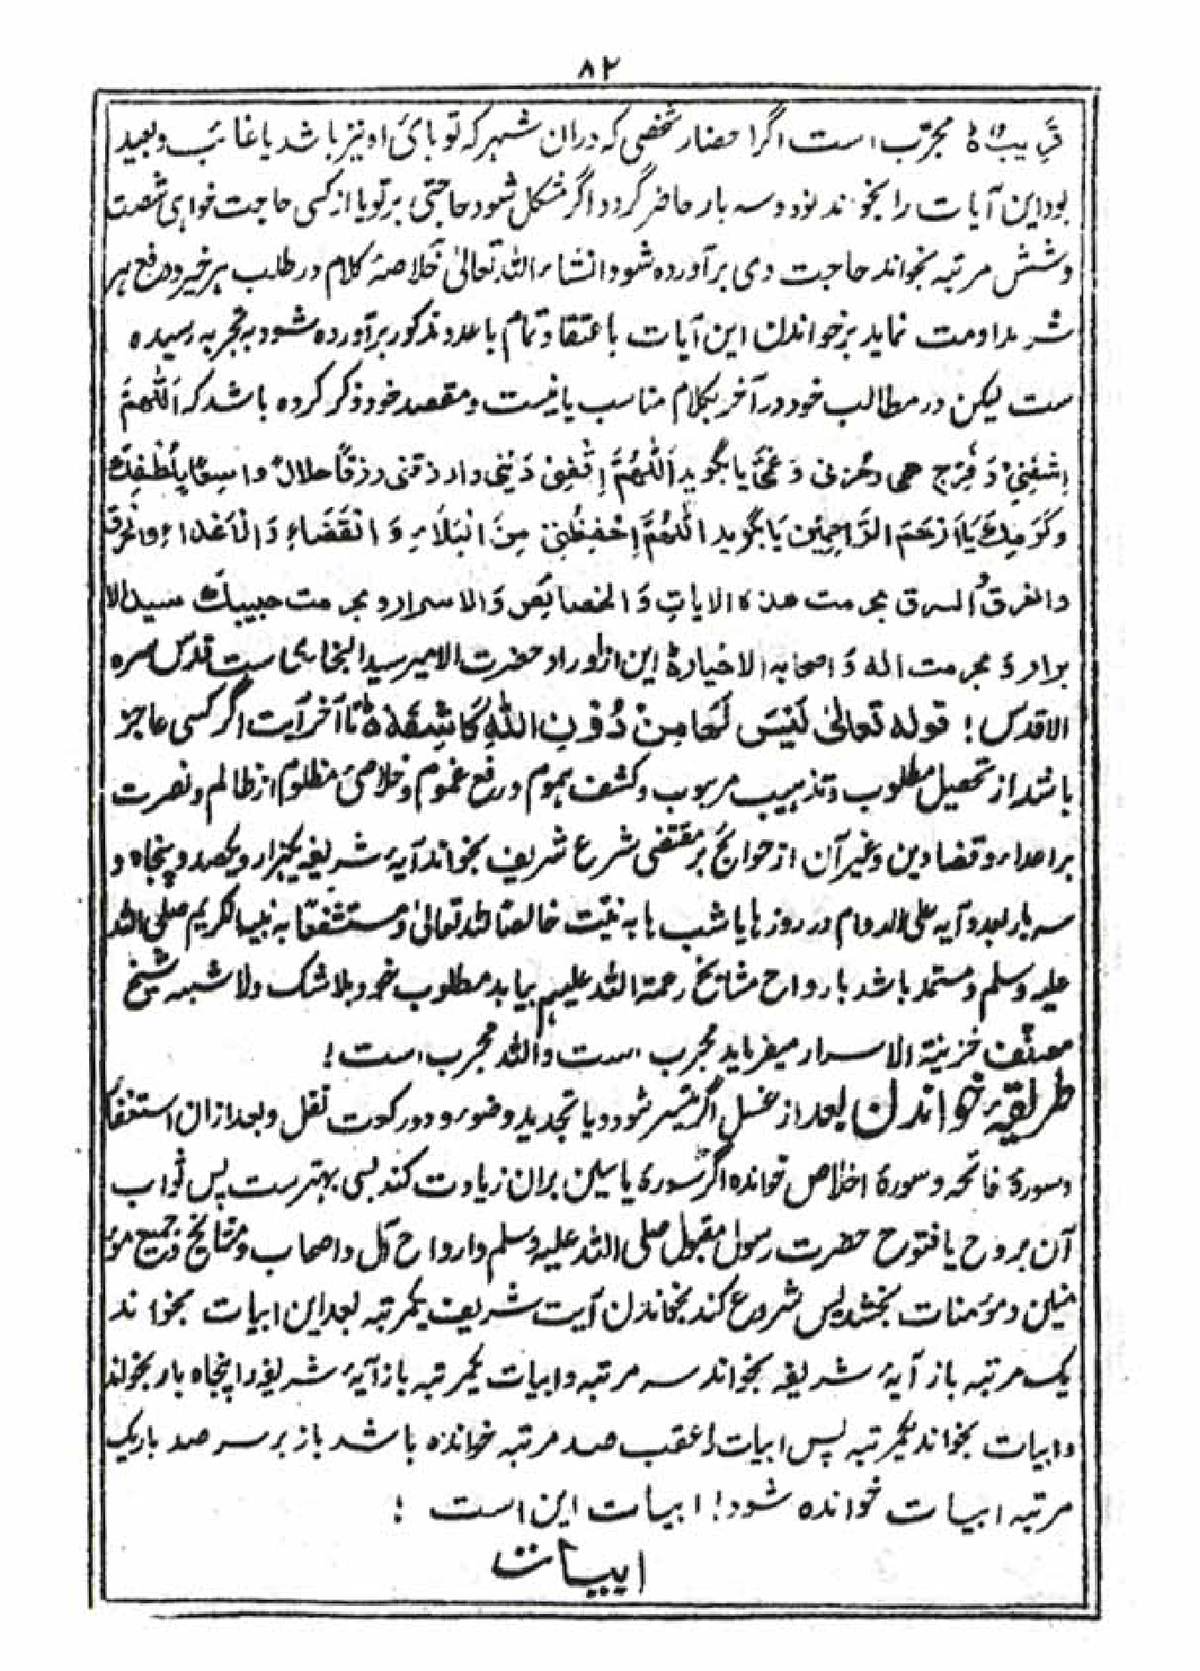 ۸۲
قریب ۃ مجرّب است اگر احضار شخصی که دران شهر که تو بائی او نیز باشد یا غائب و بعید
بود این آیات را بخواند نود و سه بار حاضر گردد اگر مشکل شود حاجتی بر تو یا از کسی حاجت خواهی شصت
و شش مرتبه بخواند حاجت وی برآورده شود انشاء الله تعالیٰ خلاصهٔ کلام در طلب هر خیر و دفع هر
شر مداومت نماید بر خواندن این آیات با عتقاد تمام با عدد مذکور برآورده شود به تجربه رسیده
ست لیکن در مطالب خود در آخر بکلام مناسب یا نیست و مقصد خود ذکر کرده باشد که اَللّٰهُمَّ
اِشْفِنِیْ وَ فَرِّج همی و حُزنی وَ غَمّی یا بگوید اَللّٰهُمَّ اِقْضِ دَیْنِی و ارزقنی رزقاً حلالاً واسِعًا بِلُطْفِكَ
وَ كَرَمِكَ یَا اَرْحَمَ الرَّاحِمِیْن یَا بگوید اَللّٰهُمَّ اِحْفِظْنِی مِنَ الْبَلَاءِ وَ الْقَضَاءِ وَ الْاَعْدَاءِ والحرق
والغرق السرق بحرمت هذه الایاتِ وَ الخصائِصِ وَ الاسرارِ و بحرمت حبیبكَ سید الا
برار وَ بحرمت اله وَ اصحابه الاخیارۃ این از اوراد حضرت الامیر سید البخاری ست قدس سره
الاقدس ؛ قوله تعالیٰ لَیْسَ لَهَا مِنْ دُوْنِ اللّٰهِ كَاشِفَةٌ تا آخر آیت اگر کسی عاجز
باشد از تحصیل مطلوب و تذهیب مرهوب و کشف هموم و رفع غموم و خلاصئ مظلوم از ظالم و نصرت
بر اعداء و قضا دین و غیر آن از حوائج بر مقتضی شرع شریف بخواند آیهٔ شریفه یکهزار و یکصد و پنجاه و
سه بار بعدد آیه علی الدوام در روزها یا شب ها به نیت خالصًا لله تعالیٰ و مستشفعًا به نبیه الکریم صلی الله
علیه وسلم و مستمد باشد بارواح مشایخ رحمة الله علیهم بیابد مطلوب خود بلا شک ولا شبهه شیخ
مصنف خزینة الاسرار میفرماید مجرب است والله مجرب است !
طریقهٔ خواندن بعد از غسل اگر میسر شود و یا تجدید وضو و دو رکوت نفل و بعد ازان استغفار
و سورهٔ فاتحه و سورهٔ اخلاص خوانده اگر سورهٔ یاسین بران زیادت کند بسی بهتر ست پس ثواب
آن بروح یا فتوح حضرت رسول مقبول صلی الله علیه وسلم و ارواح آل و اصحاب و مشایخ و جمیع مؤ
منین و مؤمنات بخشد پس شروع کند بخاندن آیت شریف یکمرتبه بعد این ابیات بخواند
یک مرتبه باز آیهٔ شریفه بخواند سه مرتبه و ابیات یکمرتبه باز آیهٔ شریفه را پنجاه بار بخواند
و ابیات بخواند یکمرتبه پس ابیات را عقب صد مرتبه خوانده باشد باز بر سه صد بار یک
مرتبه ابیات خوانده شود ! ابیات این است ؛
ابیات